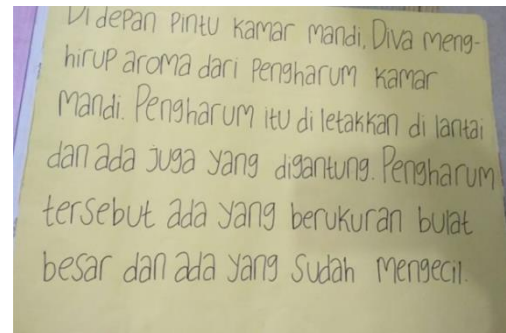 Di depan pintu kamar mandi, Diva meng-
hirup aroma dari pengharum kamar
mandi. Pengharum itu di letakkan di lantai
dan ada juga yang digantung. Pengharum
tersebut ada yang berukuran bulat
besar dan ada yang sudah mengecil.